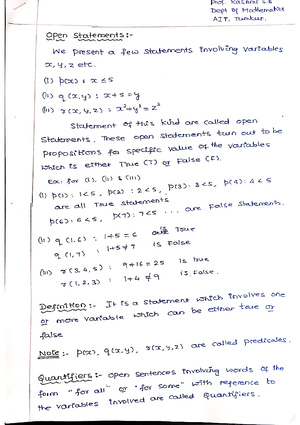 Prof. Rashmi S.B
Dept of Mathematics
AIT, Tumkur.
Open Statements:-
We present a few statements involving variables
x, y, z etc.
(i) p(x) : x ≤ 5
(ii) q(x,y) : x+5 = y
(iii) r(x,y,z) : x²+y² = z²
Statement of this kind are called open
Statements. These open statements turn out to be
propositions for specific value of the variables
which is either True (T) or False (F).
Ex: for (i), (ii) & (iii)
(i) p(1) : 1<5, p(2) : 2<5, p(3) : 3<5, p(4) : 4<5
are all True statements
p(6) : 6<5, p(7) : 7<5 ... are False statements.
(ii) q(1,6) : 1+5=6 is True
q(1,7) : 1+5≠7 is False
(iii) r(3,4,5) : 9+16=25 is true
r(1,2,3) : 1+4≠9 is False.
Definition:- It is a statement which involves one
or more variable which can be either true or
false
Note:- p(x), q(x,y), r(x,y,z) are called predicates.
Quantifiers:- Open sentences involving words of the
form "for all" or "for some" with reference to
the variables involved are called Quantifiers.